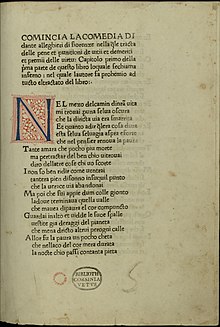 COMINCIA LA COMEDIA DI
dante alleghieri di fiorenze nella q̄le tracta
delle pene et punitioni de uitii et demeriti
et premii delle uirtu: Capitolo primo della
p̄ma parte de questo libro loquale sechiama
inferno : nel quale lautore fa prohemio ad
tucto eltractato del libro:
NEL mezo delcamin dinrā uita
mi trouai puna selua oscura
che la diricta uia era smarrita
Et quanto adir q̄lera cosa dura
esta selua seluagia aspra eforte
che nel pensier renoua la paura
Tante amara che pocho piu morte
ma pertractar del ben chio uitrouai
diro dellaltre cose chi uo scorte
I non so ben ridir come uentrai
tantera pien disonno insuquel punto
che la uerace uia abandonai
Ma poi che fui appie dum colle gionto
ladoue terminaua quella ualle
che mauea dipaura el cor compuncto
Guardai inalto et uidde le suoe spalle
uestite gia deraggi del pianeta
che mena dricto altrui perogni calle
Allor fu la paura un pocho cheta
che nellaco del cor mera durata
la nocte chio passai contanta pieta
BIBLIOTH
COMMUNIA
VETUS